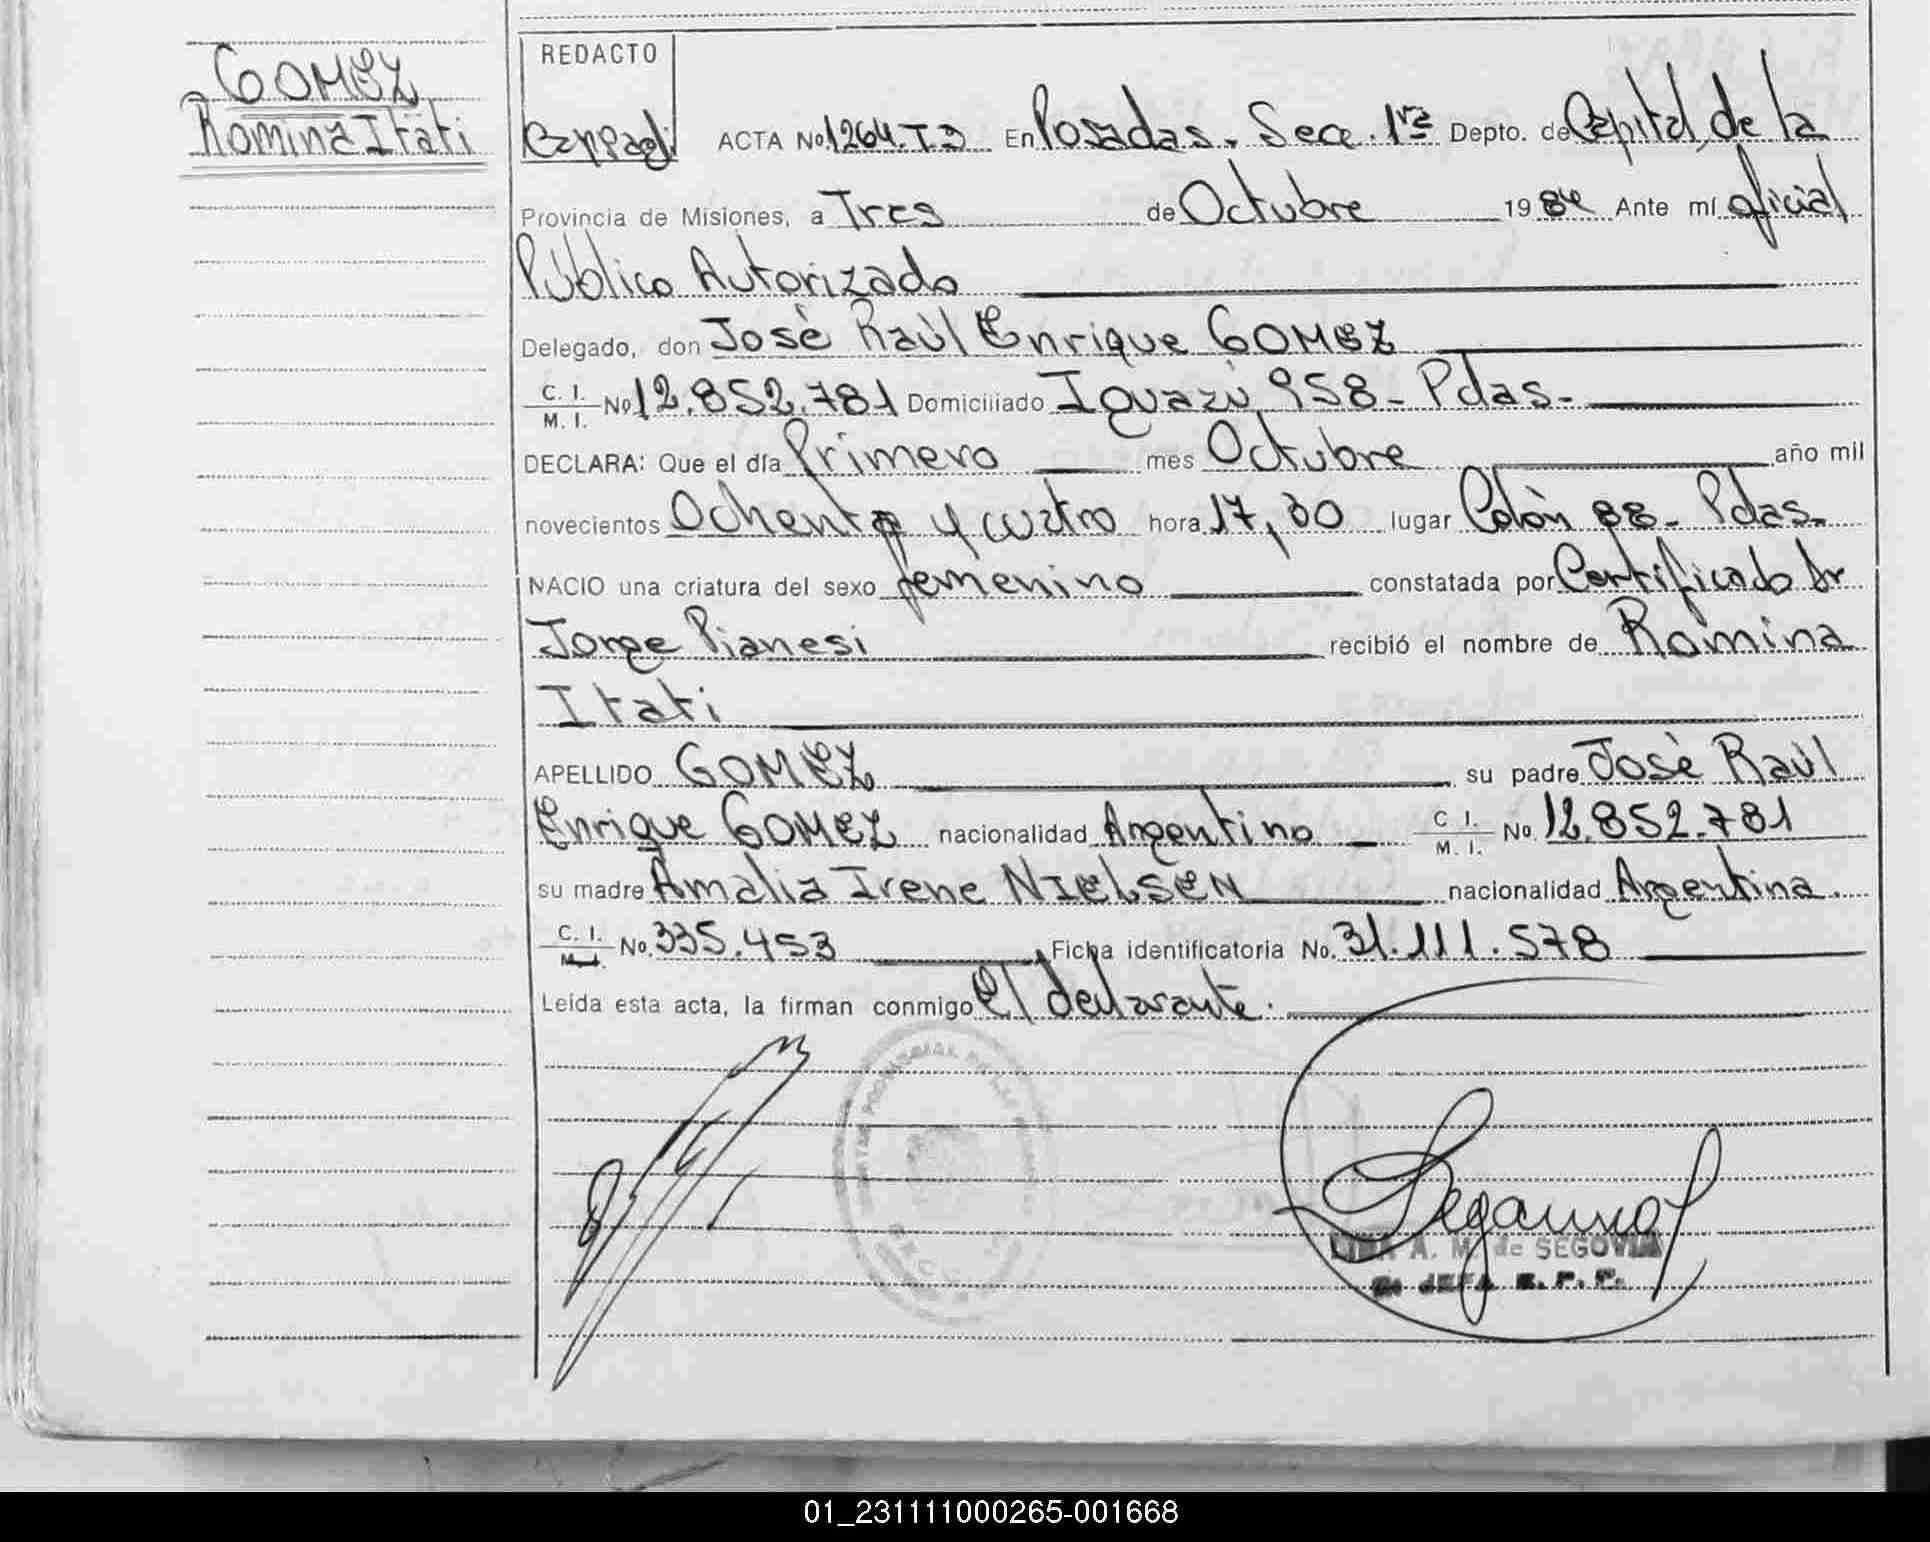 GOMEZ
Romina Itati
REDACTO
ACTA No 1264.T3 En Posadas. Secc. 1ra Depto. de Capital, de la
Provincia de Misiones, a Tres de Octubre 1984 Ante mí oficial
Público Autorizado
Delegado, don José Raúl Enrique GOMEZ
C. I.
M. I. No 12.852.781 Domiciliado Iguazú 958 - Pdas.
DECLARA: Que el día Primero mes Octubre año mil
novecientos Ochenta y cuatro hora 17,30 lugar Colón 88 - Pdas.
NACIO una criatura del sexo femenino constatada por Certificado Dr
Jorge Pianesi recibió el nombre de Romina
Itati
APELLIDO GOMEZ su padre José Raúl
Enrique GOMEZ nacionalidad Argentino C. I.
M. I. No. 12.852.781
su madre Amalia Irene NIELSEN nacionalidad Argentina.
C. I.
M. I. No. 335.453 Ficha identificatoria No. 31.111.578
Leída esta acta, la firman conmigo el declarante.
A. M. de SEGOVIA
JEFA
01_231111000265-001668